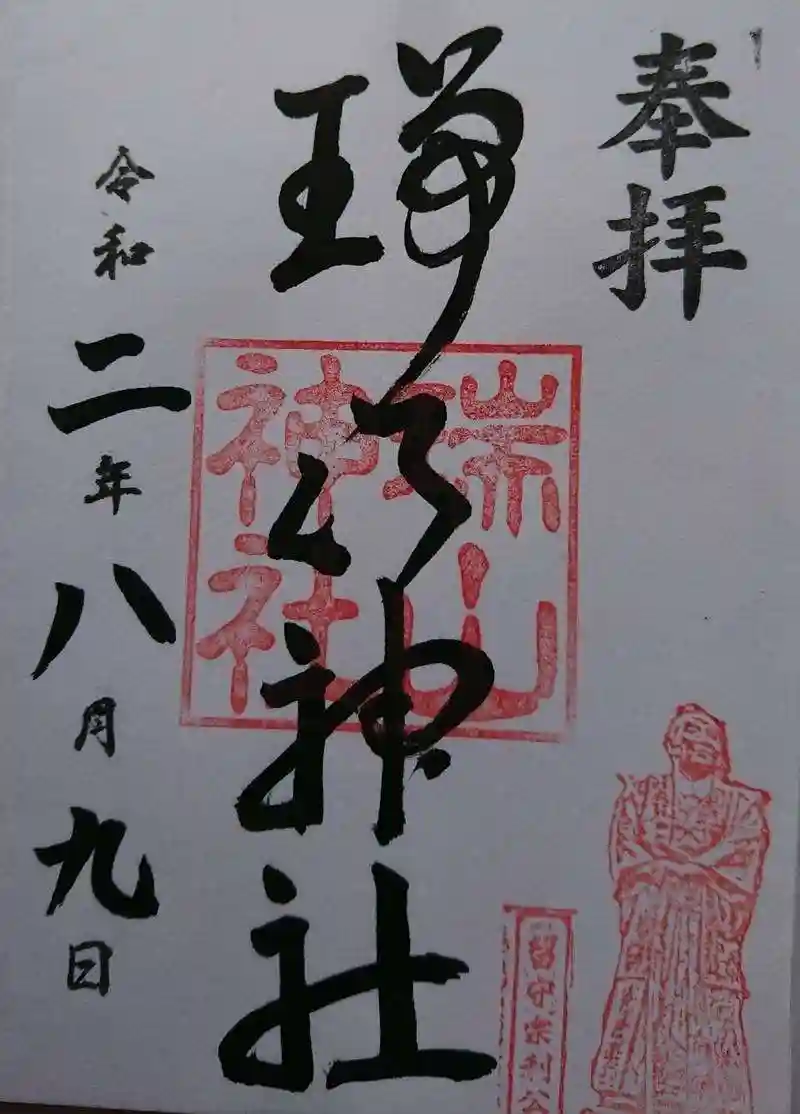 奉拝
瑞山神社
瑞山神社
留守宗利公
令和二年八月九日